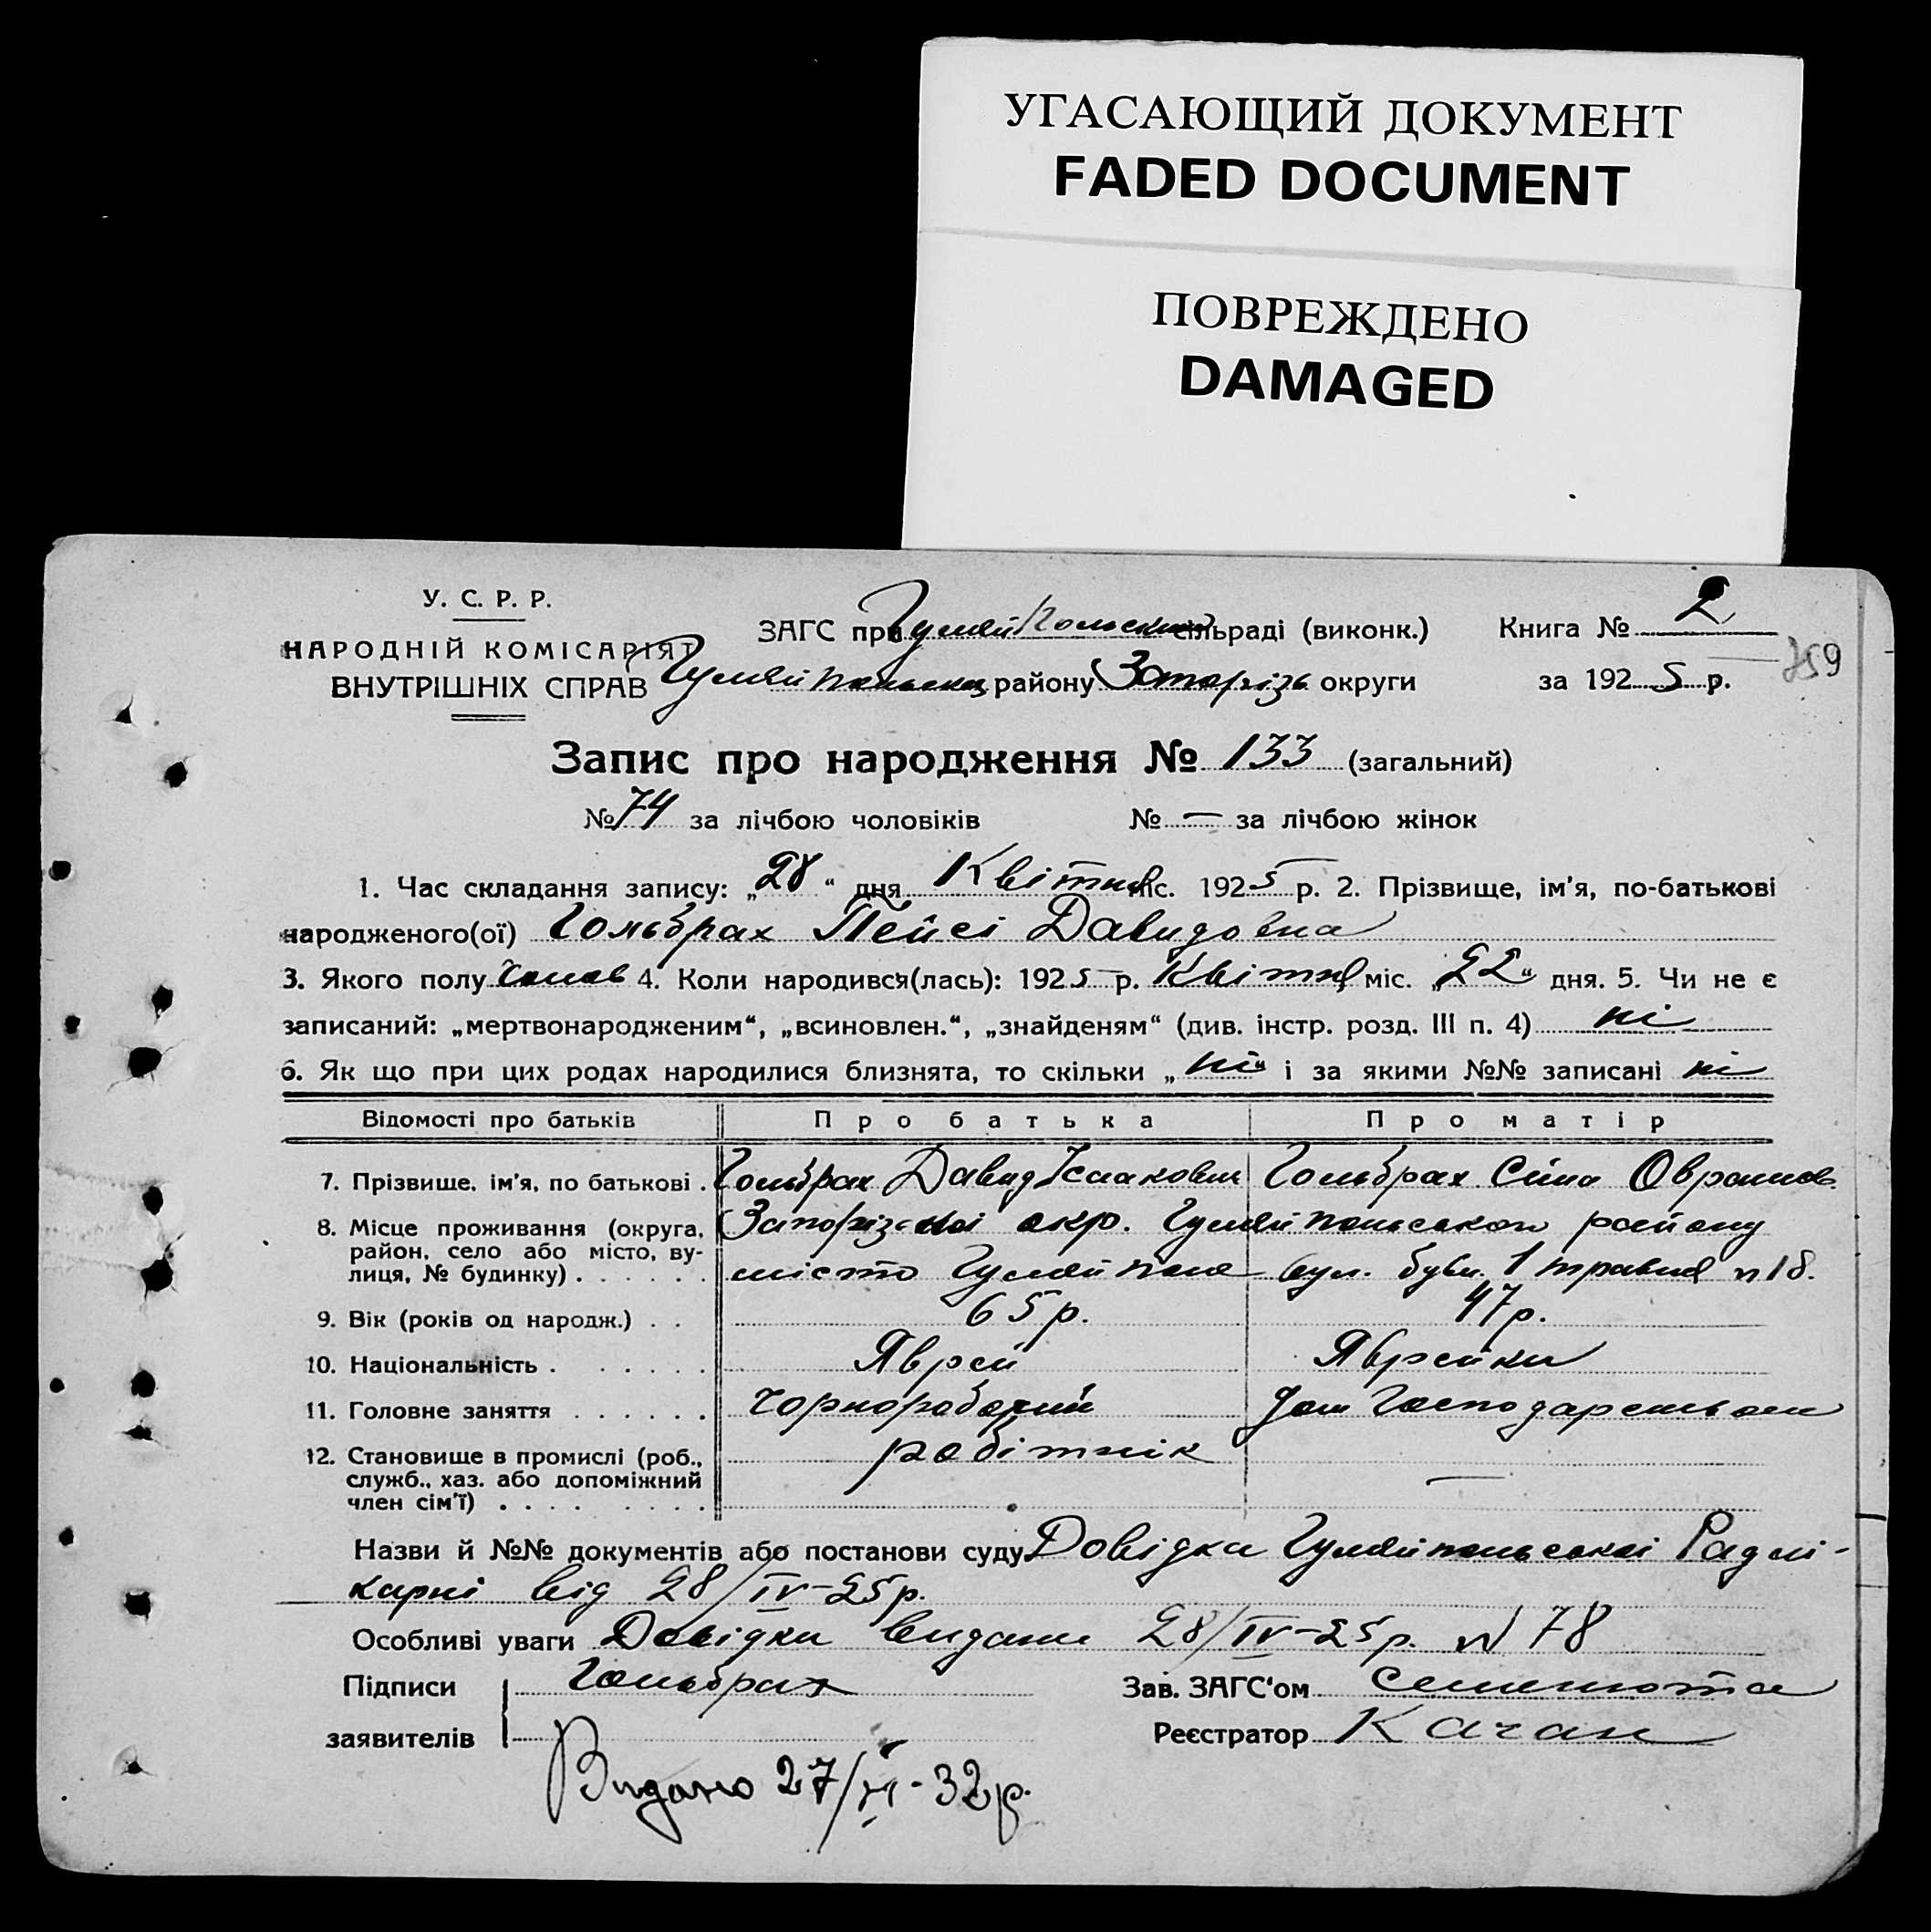 УГАСАЮЩИЙ ДОКУМЕНТ
FADED DOCUMENT
ПОВРЕЖДЕНО
DAMAGED
У. С. Р. Р.
НАРОДНІЙ КОМІСАРІЯТ
ВНУТРІШНІХ СПРАВ
ЗАГС при Гуляйпольский сільраді (виконк.) Книга № 2
Гуляйпольськ району Запорізь округи за 1925 р.
759
Запис про народження № 133 (загальний)
№ 74 за лічбою чоловіків № — за лічбою жінок
1. Час складання запису: „28“ дня Квітня міс. 1925 р. 2. Прізвище, ім'я, по-батькові
народженого(ої) Гольбрах Пейсі Давидовна
3. Якого полу чолов 4. Коли народився(лась): 1925 р. Квітня міс. „22“ дня. 5. Чи не є
записаний: „мертвонародженим“, „всиновлен.“, „знайденям“ (див. інстр. розд. III п. 4) ні
6. Як що при цих родах народилися близнята, то скільки „ні“ і за якими №№ записані ні
Відомості про батьків Про батька Про матір
7. Прізвище, ім'я, по батькові . Гольбрах Давид Ісаакович Гольбрах Сіма Оврамов.
8. Місце проживання (округа, район, село або місто, вулиця, № будинку) . . . . . . Запорізької окр. Гуляйпольського району
місто Гуляйполе вул. бувш. 1 травня № 18.
9. Вік (років од народж.) . . 65 р. 47 р.
10. Національність . . . . . . Яврей Яврейка
11. Головне заняття . . . . . . чорноробочий дом господарством
12. Становище в промислі (роб., служб., хаз. або допоміжний член сім'ї) . . . . . . . . робітнік —
Назви й №№ документів або постанови суду Довідка Гуляйпольської Радлі-
карні від 28/IV-25 р.
Особливі уваги Довідка видана 28/IV-25 р. № 78
Підписи Гольбрах Зав. ЗАГС'ом
заявителів Реєстратор Качан
Видано 27/ -32 р.